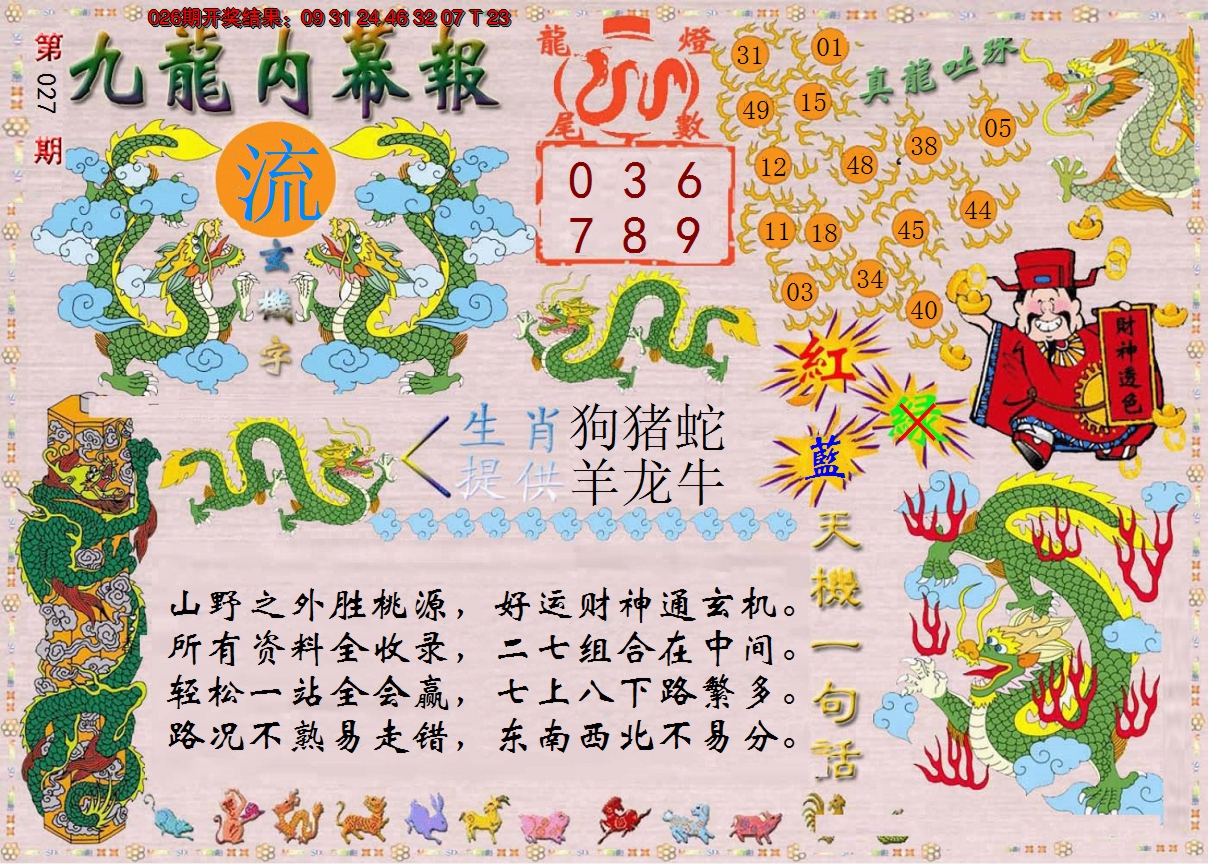 026期开奖结果：09 31 24 46 32 07 T 23
第027期
九龍内幕報
流
玄機字
龍燈
尾數
0 3 6
7 8 9
真龍吐珠
31
01
49
15
05
38
12
48
44
11
18
45
34
03
40
財神透色
紅
绿
藍
生肖
提供
狗猪蛇
羊龙牛
天機一句話
山野之外胜桃源，好运财神通玄机。
所有资料全收录，二七组合在中间。
轻松一站全会赢，七上八下路繁多。
路况不熟易走错，东南西北不易分。